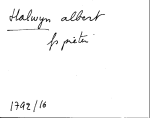 Halwyn albert
fs pieter
1792/16